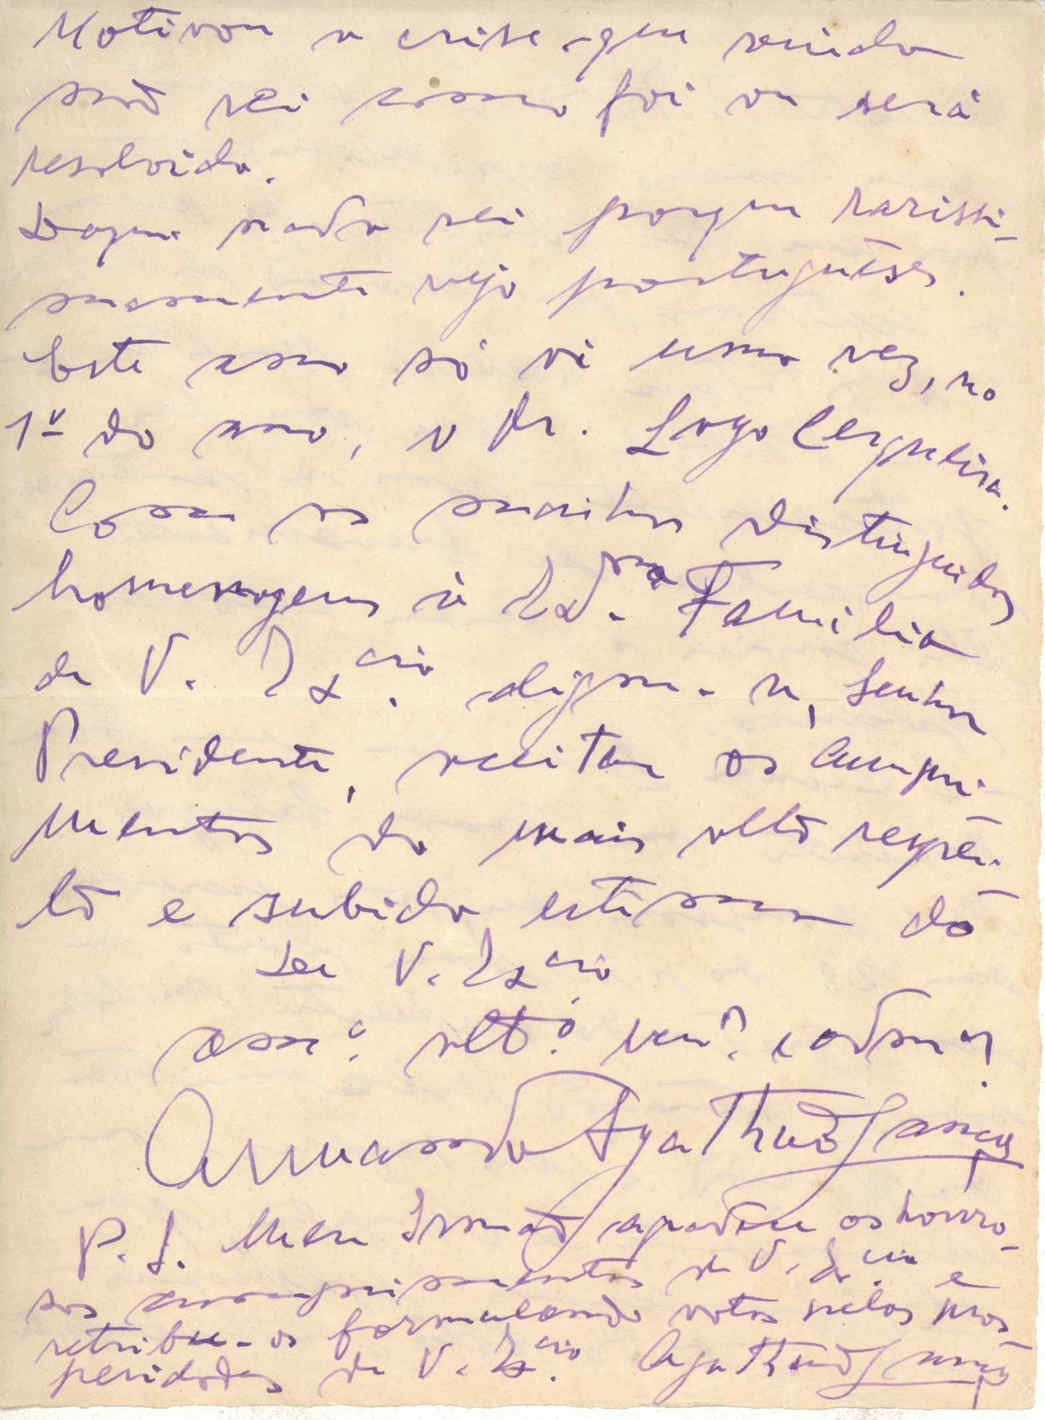 Motivou a crise que ainda
não sei como foi ou será
resolvida.
Daqui nada sei porque rarissi-
mamente vejo portuguêses.
Este ano só vi uma vez, no
1º do ano, o Dr. Lago Cerqueira.
Com as muitas distinguidas
homenagens à Exma. Familia
de V. Excia. digne-se, Senhor
Presidente, aceitar os cumpri-
mentos do mais alto respei-
to e subida estima do
De V. Excia
amº. attº. venº. e admºr.
Armando Agatão Lança
P. S. Meu Irmão agradece os honro-
sos cumprimentos de V. Excia e
retribue-os formulando votos pelas pros-
peridades de V. Excia. Agatão Lança